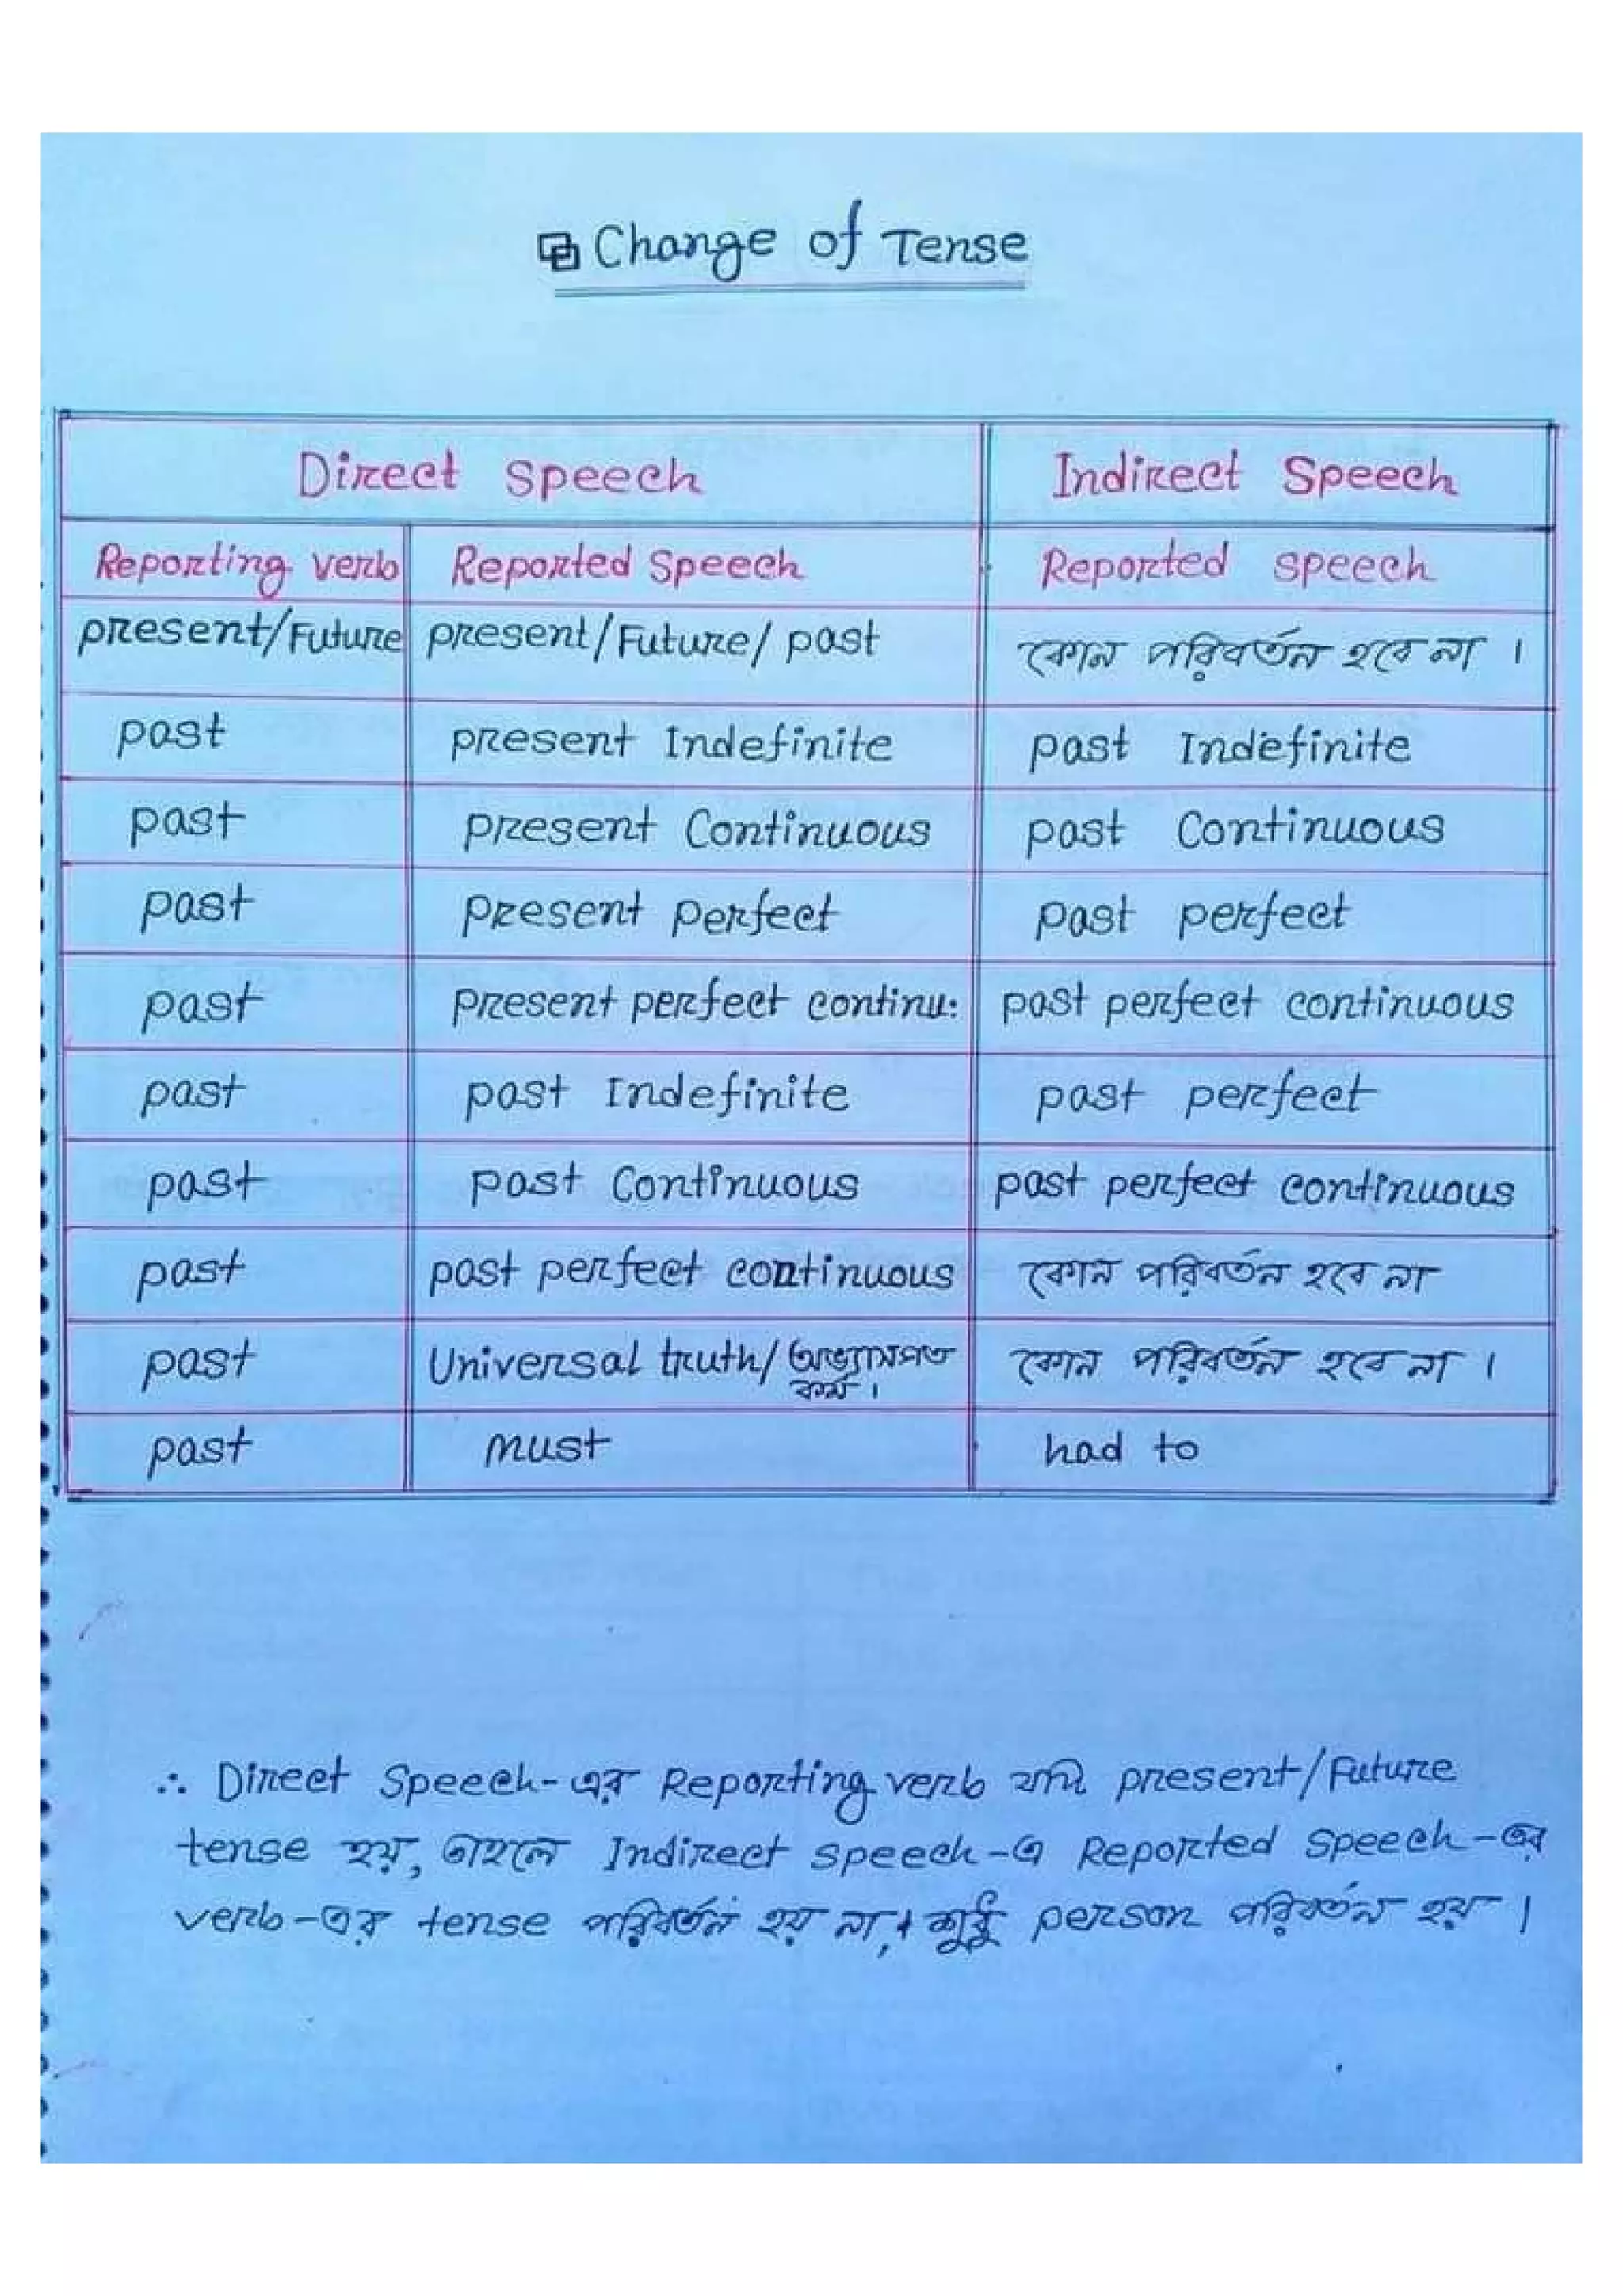 Change of Tense
Direct Speech Indirect Speech
Reporting verb Reported Speech Reported speech
present/Future present/Future/past কোন পরিবর্তন হবে না ।
past present Indefinite past Indefinite
past present Continuous past Continuous
past present perfect past perfect
past present perfect continu: past perfect continuous
past past Indefinite past perfect
past past Continuous past perfect continuous
past past perfect continuous কোন পরিবর্তন হবে না
past Universal truth/অভ্যাসগত কোন পরিবর্তন হবে না ।
কর্ম ।
past must had to
∴ Direct Speech-এর Reporting verb যদি present/Future
tense হয়, তাহলে Indirect speech-এ Reported Speech-এর
verb-এর tense পরিবর্তন হয় না, শুধু person পরিবর্তন হয় ।